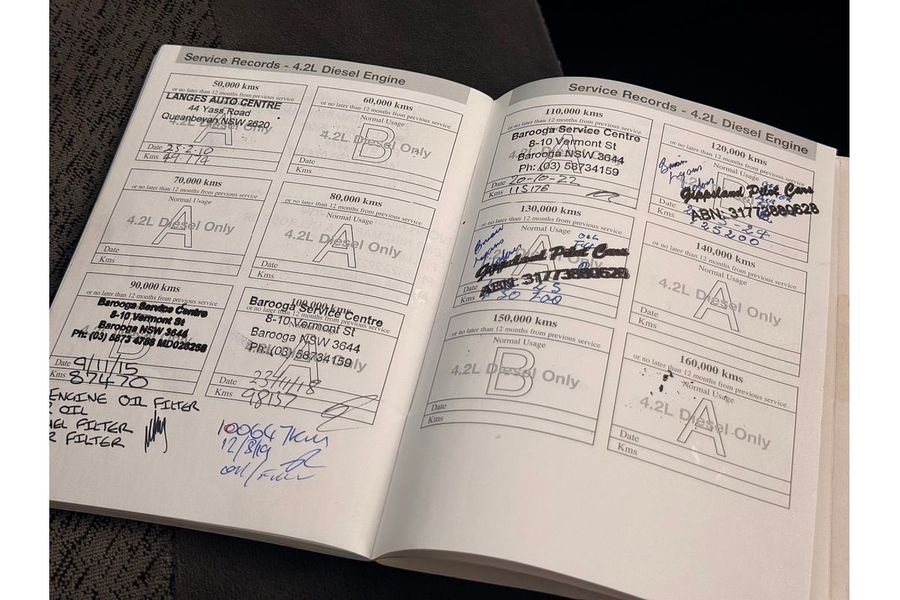 Service Records - 4.2L Diesel Engine
50,000 kms
or no later than 12 months from previous service
LANGES AUTO CENTRE
44 Yass Road
Queanbeyan NSW 2620
4.2L Diesel Only
A
Date 23-2-10
Kms 49774
60,000 kms
or no later than 12 months from previous service
Normal Usage
4.2L Diesel Only
B
Date
Kms
70,000 kms
or no later than 12 months from previous service
Normal Usage
4.2L Diesel Only
A
Date
Kms
80,000 kms
or no later than 12 months from previous service
Normal Usage
4.2L Diesel Only
A
Date
Kms
90,000 kms
or no later than 12 months from previous service
Barooga Service Centre
8-10 Vermont St
Barooga NSW 3644
Ph: (03) 5873 4788
B
Date 9/11/15
Kms 87470
ENGINE OIL FILTER
OIL
FILTER
FILTER
100,000 kms
or no later than 12 months from previous service
Barooga Service Centre
8-10 Vermont St
Barooga NSW 3644
Ph: (03) 58734159
A
Date 23/11/18
Kms
100647km
12/8/19
oil/
Service Records - 4.2L Diesel Engine
110,000 kms
or no later than 12 months from previous service
Barooga Service Centre
8-10 Vermont St
Barooga NSW 3644
Ph: (03) 58734159
A
Date 20-10-22
Kms 115176
120,000 kms
or no later than 12 months from previous service
Normal Usage
Gippsland Pilot Cars
ABN: 31773880628
25200
130,000 kms
or no later than 12 months from previous service
Normal Usage
Gippsland Pilot Cars
ABN: 31773880628
A
Date
Kms 130700
140,000 kms
or no later than 12 months from previous service
Normal Usage
4.2L Diesel Only
A
Date
Kms
150,000 kms
or no later than 12 months from previous service
Normal Usage
4.2L Diesel Only
B
Date
Kms
160,000 kms
or no later than 12 months from previous service
Normal Usage
4.2L Diesel Only
A
Date
Kms